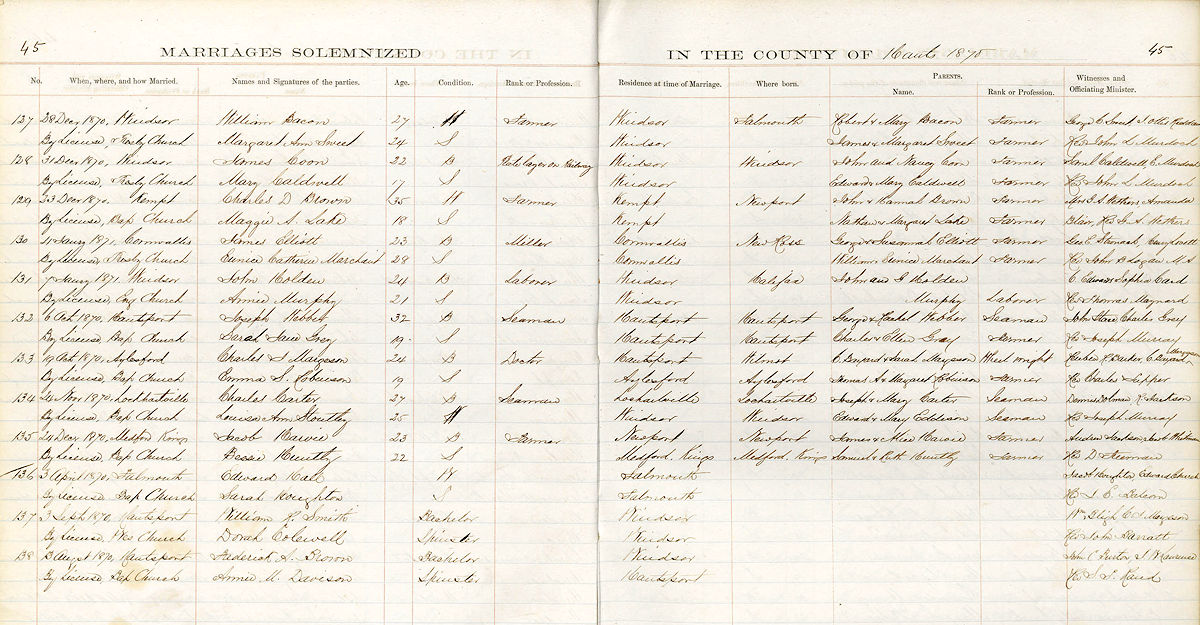 45 MARRIAGES SOLEMNIZED IN THE COUNTY OF Hants 1870 45
No. When, where, and how Married. Names and Signatures of the parties. Age. Condition. Rank or Profession. Residence at time of Marriage. Where born. PARENTS. Name. Rank or Profession. Witnesses and Officiating Minister.
127 28 Decr 1870, Windsor William Bacon 27 W Farmer Windsor Falmouth Robert & Mary Bacon Farmer George C. Smith J. Otis
By License, Presby Church Margaret Ann Sweet 24 S Windsor James & Margaret Sweet Farmer Rev John L. Murdoch
128 31 Decr 1870, Windsor James Coon 22 B Plate layer on Railway Windsor Windsor John and Nancy Coon Farmer Saml Caldwell, E. Murdoch
By License, Presby Church Mary Caldwell 17 S Windsor Edward & Mary Caldwell Farmer Rev John L Murdoch
129 23 Decr 1870. Kempt Charles D Brown 35 W Farmer Kempt Newport John & Hannah Brown Farmer Mrs G. A. Amanda
By License, Bap Church Maggie A. Lake 18 S Kempt Nathan & Margaret Lake Farmer Blair, Rev G. A.
130 Jany 1871, Cornwallis James Elliott 23 B Miller Cornwallis New Ross George & Susannah Elliott Farmer Geo E.
By License, Presby Church Eunice Catherine Marchant 28 S Cornwallis William & Eunice Marchant Farmer Rev John B Logan
131 Jany 1871. Windsor John Holden 24 B Laborer Windsor Halifax John and G Holden C. Edward Sophia Card
By License, Eng Church Annie Murphy 21 S Windsor Murphy Laborer Rev Thomas Maynard
132 6 Oct 1870, Hantsport Joseph Webber 32 B Seaman Hantsport Hantsport George & Rachel Webber Seaman John Charles Grey
By License, Bap Church Sarah Jane Grey 19 S Hantsport Hantsport Charles & Ellen Gray Farmer Rev Joseph Murray
133 19 Oct 1870, Aylesford Charles I Margeson 24 B Doctor Hantsport Wilmot C. Bogard & Sarah Margeson Wheel wright R. Barker, E. Margeson
By License, Bap Church Emma S. Robinson 19 S Aylesford Aylesford Thomas A & Margaret Robinson Farmer Rev Charles Tupper
134 24 Nov 1870, Lockhartville Charles Carter 27 B Seaman Lockhartville Lockhartville Joseph & Mary Carter Seaman Jackson
By License, Bap Church Louisa Ann 25 W Windsor Windsor Edward & Mary Eddison Seaman Rev Joseph Murray
135 24 Decr 1870, Medford Kings Jacob Harvie 23 B Farmer Newport Newport James & Alice Harvie Farmer Andrew Jackson, Jacob Whitman
By License, Bap Church Bessie Huntly 22 S Medford. Kings Medford. Kings Samuel & Ruth Huntly Farmer Rev D. Freeman
136 3 April 1870, Falmouth Edward Hall W Falmouth Houghton Edward Church
By License Bap Church Sarah Houghton S Falmouth Rev
137 3 Sept 1870, Hantsport William H. Smith Bachelor Windsor Wm Bligh C. I Margeson
By License, Wes Church Dorah Colewell Spinster Windsor Rev John Barratt
138 3 Augst 1870, Hantsport Frederick A. Brown Bachelor Windsor John C
By License Bap Church Annie M. Davison Spinster Hantsport Rev S. T. Rand